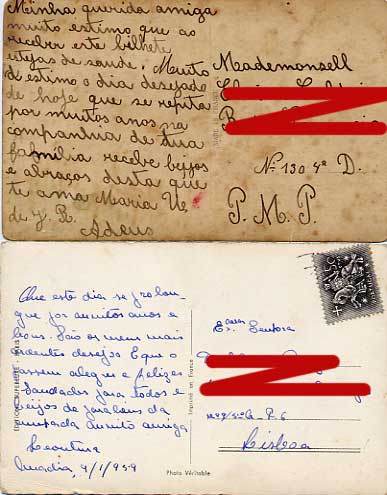 Minha querida amiga
muito estimo que ao
receber este bilhete
estejas de saude. Muito
estimo o dia desejado
de hoje que se repita
por muitos anos na
companhia de tua
familia recebe beijos
e abraços desta que
te ama Maria
Adeus
Mademonsell
Nº 130 4º D.
P. M. P.
Que este dia se prolon-
gue por muitos anos e
bons. São os meus mais
ardentes desejos E que o
passem alegres e felizes
Saudades para todos e
beijos de parabens da
muito amiga
9/1/959
Exma Senhora
Lisboa
Imprimé en France
Photo Véritable